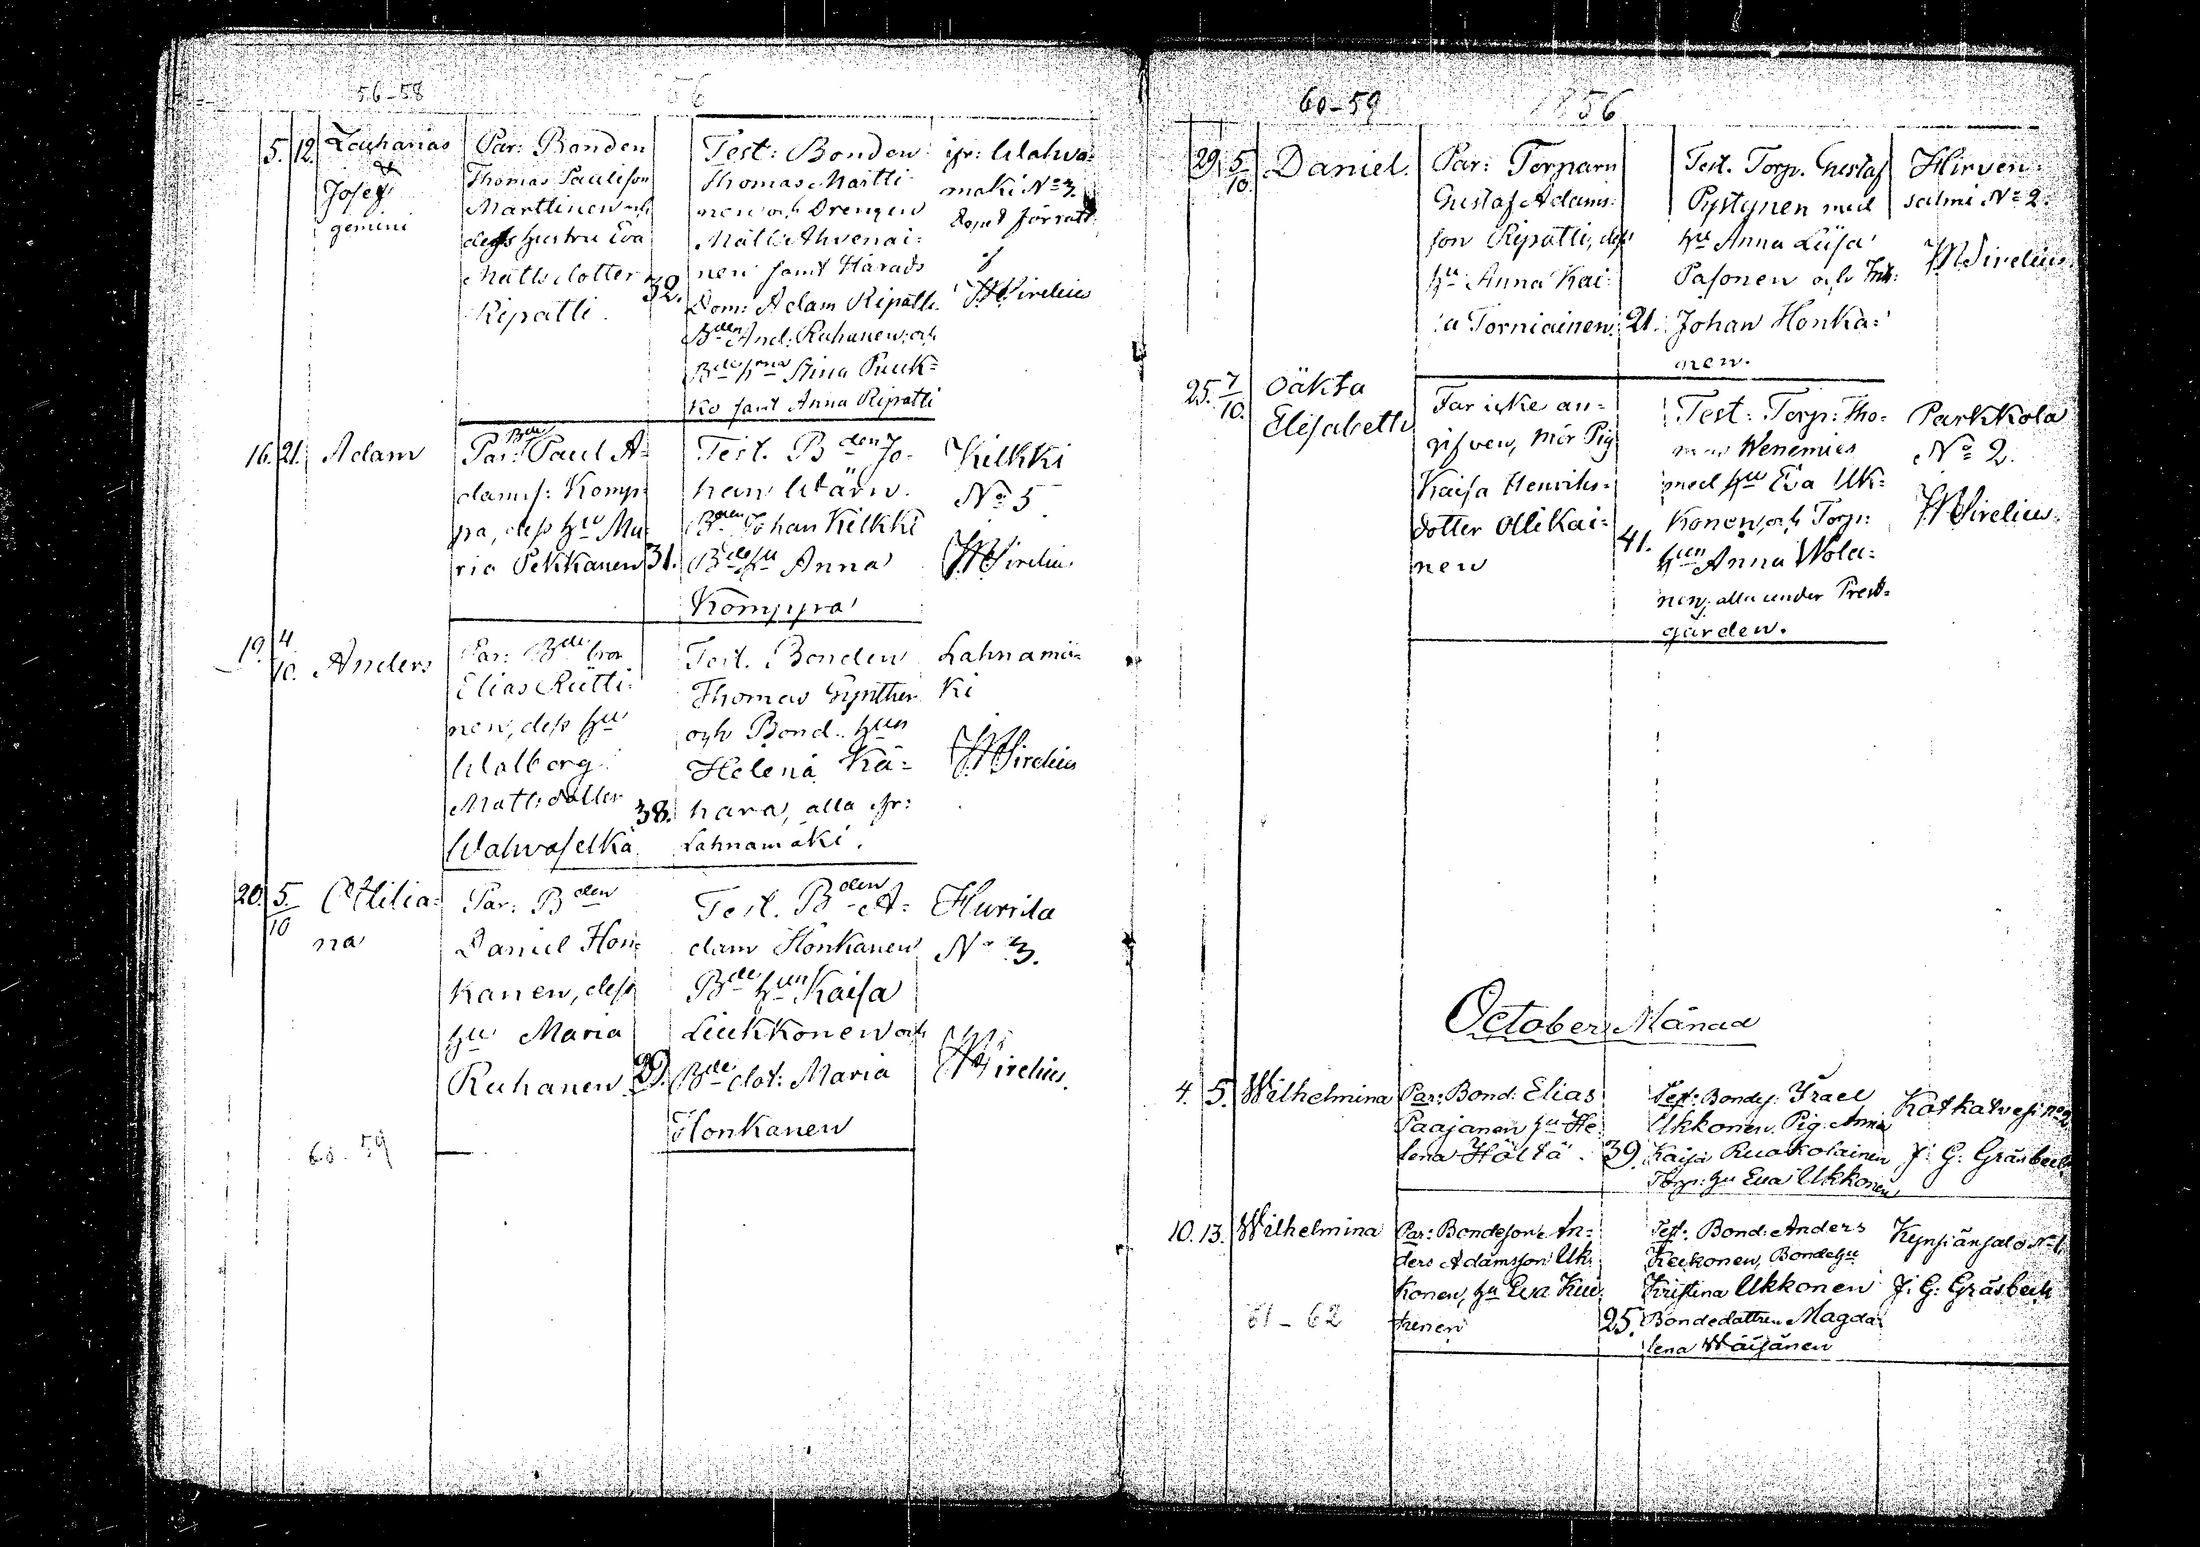 56-58
56
5. 12. Zacharias
&
Josef
gemini
Par: Bonden
Thomas Paulisson
Marttinen och
dess hustru Eva
Matts dotter
Ripatti.
32.
Test: Bonden
Thomas Martti-
nen och Drengen
Matts Ahvenai-
nen samt Härads
Dom: Adam Ripatti
Bden And: Ruhanen, och
Stina Puuk=
ko samt Anna Ripatti
ifr: Wahva-
mäki No 3.
Dopet förrätt:
af
Sirelius
16. 21. Adam
Par: Bden Paul A-
damss: Komp-
pa, dess hu Ma-
ria Pekkanen
31.
Test. Bden Jo-
han Wärn.
Bden Johan Kilkki
Bde hu Anna
Komppa
Kilkki
No 5
Sirelius
19. 4/10. Anders
Par: Bde bror
Elias Rütti-
nen, dess hu
Walborg
Matts dotter
Wahvaselkä
38.
Test. Bonden
Thomas Gynther
och Bond. hun
Helena Kä-
härä, alla fr:
Lahnamäki.
Lahnamä-
ki
Sirelius
20. 5/10 Ottilia-
na
Par: Bden
Daniel Hon-
kanen, dess
hu Maria
Ruhanen
29.
Test. Bden A-
dam Honkanen
Bde hun Kaisa
Liukkonen och
Bde dot: Maria
Honkanen
Hurrila
No 3.
Sirelius.
60-59
60-59
1856
29. 5/10. Daniel.
Par: Torparn
Gustaf Adams-
son Ripatti, dess
hu Anna Kai-
sa Torniainen.
21.
Test. Torp. Gustaf
Pystynen med
hu Anna Liisa
Pasonen och Inh:
Johan Honka-
nen.
Hirven-
salmi No 2.
Sirelius.
25. 7/10. Oäkta
Elisabeth
Far icke an-
gifven, mor Pig
Kaisa Henriks-
dotter Ollikai-
nen
41.
Test: Torp: Tho-
mas Wenemies
med hu Eva Uk-
konen, och Torp:
hun Anna Nola-
nen, alla under Prest-
gården.
Parkkola
No 2.
Sirelius.
October Månad
4. 5. Wilhelmina
Par: Bond: Elias
Paajanen hu He-
lena Hältä.
39.
Test: Bondes: Israel
Ukkonen. Pig. Anna
Kaisa Ruokolainen
Torp: hu Eva Ukkonen
Kotkatvesi No 2
J: G: Gråsbeck
10. 13. Wilhelmina
Par: Bondeson An-
ders Adamsson Uk-
konen, hu Eva Kui-
tunen
25.
Test: Bond: Anders
Kekkonen, Bondehu
Kristina Ukkonen
Bondedottren Magda-
lena Wäisänen
Kynsiänsalo No 1.
J: G: Gråsbeck
61-62